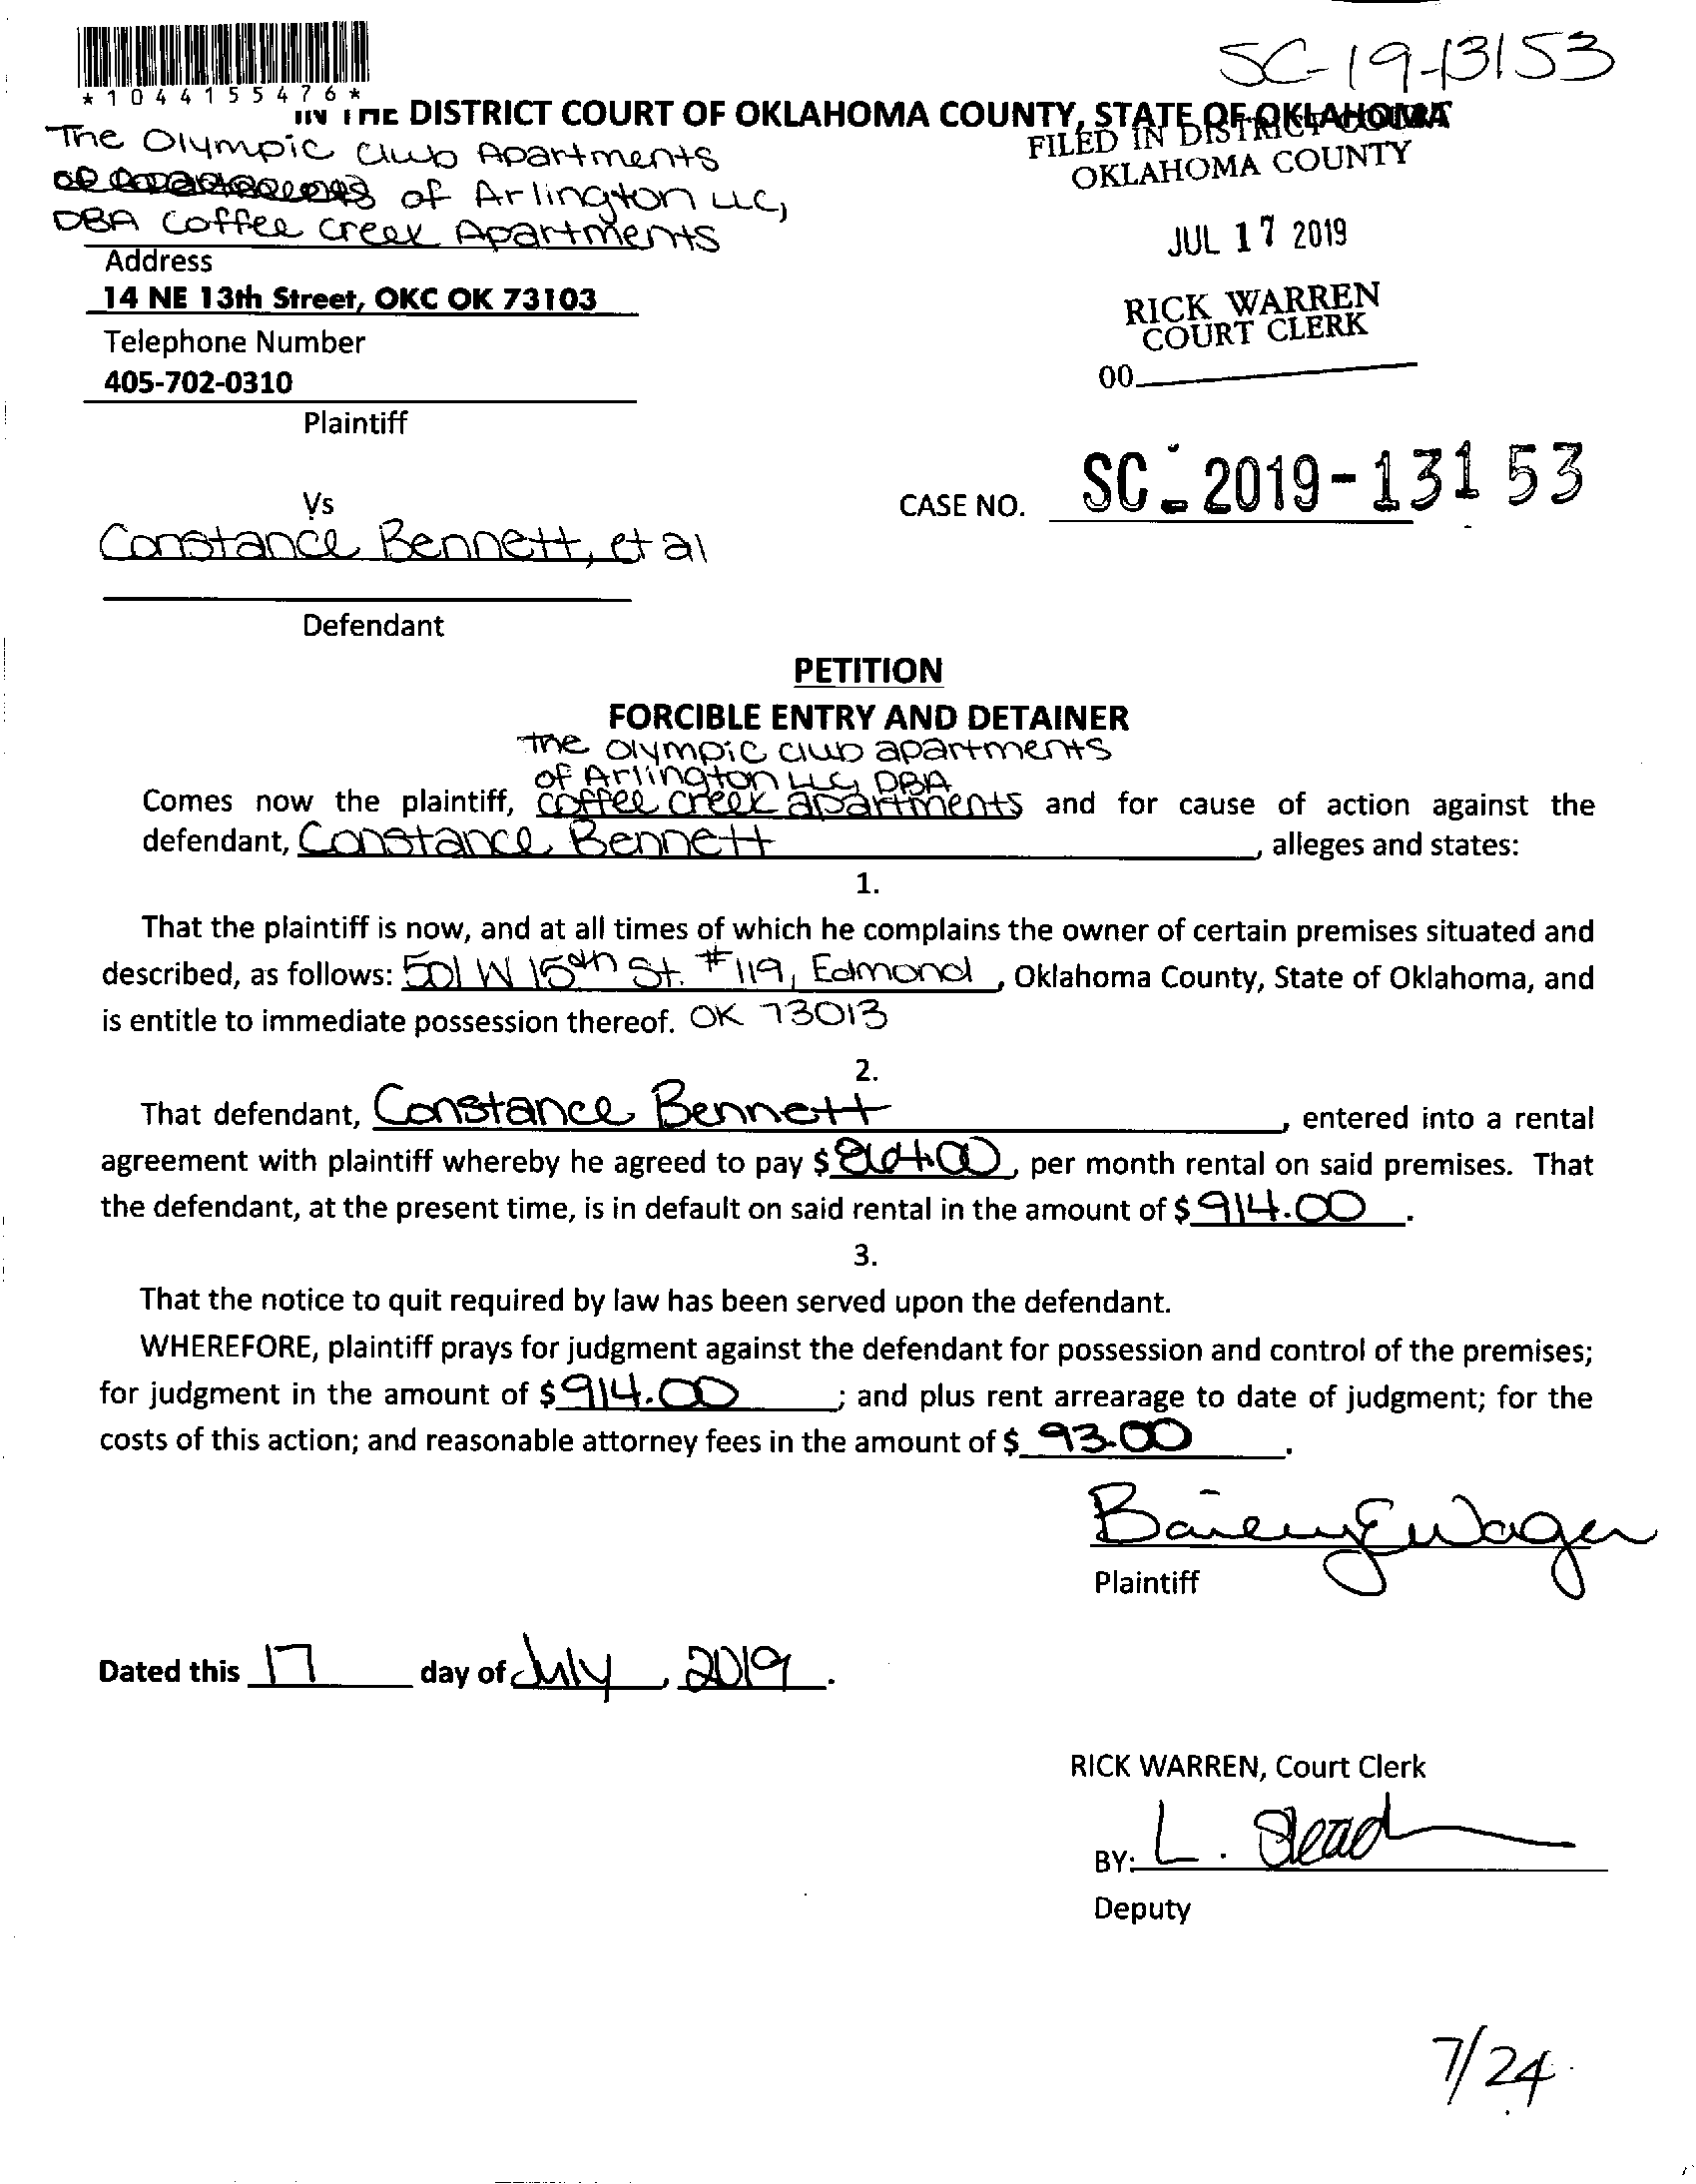 SC-19-13153
*1044155476*
IN THE DISTRICT COURT OF OKLAHOMA COUNTY, STATE OF OKLAHOMA
The Olympic Club Apartments
FILED IN DISTRICT COURT
OKLAHOMA COUNTY
of Arlington LLC,
DBA Coffee Creek Apartments
JUL 17 2019
Address
14 NE 13th Street, OKC OK 73103
RICK WARREN
COURT CLERK
Telephone Number
00
405-702-0310
Plaintiff
Vs
CASE NO. SC-2019-13153
Constance Bennett, et al
Defendant
PETITION
FORCIBLE ENTRY AND DETAINER
The Olympic club apartments
of Arlington LLC, DBA
Comes now the plaintiff, coffee creek apartments and for cause of action against the
defendant, Constance Bennett, alleges and states:
1.
That the plaintiff is now, and at all times of which he complains the owner of certain premises situated and
described, as follows: 501 W 15th St. #119, Edmond, Oklahoma County, State of Oklahoma, and
is entitle to immediate possession thereof. OK 73013
2.
That defendant, Constance Bennett, entered into a rental
agreement with plaintiff whereby he agreed to pay $ per month rental on said premises. That
the defendant, at the present time, is in default on said rental in the amount of $ 914.00.
3.
That the notice to quit required by law has been served upon the defendant.
WHEREFORE, plaintiff prays for judgment against the defendant for possession and control of the premises;
for judgment in the amount of $ 914.00; and plus rent arrearage to date of judgment; for the
costs of this action; and reasonable attorney fees in the amount of $ 93.00.
Bailey E Wager
Plaintiff
Dated this 17 day of July, 2019.
RICK WARREN, Court Clerk
BY: L.
Deputy
7/24